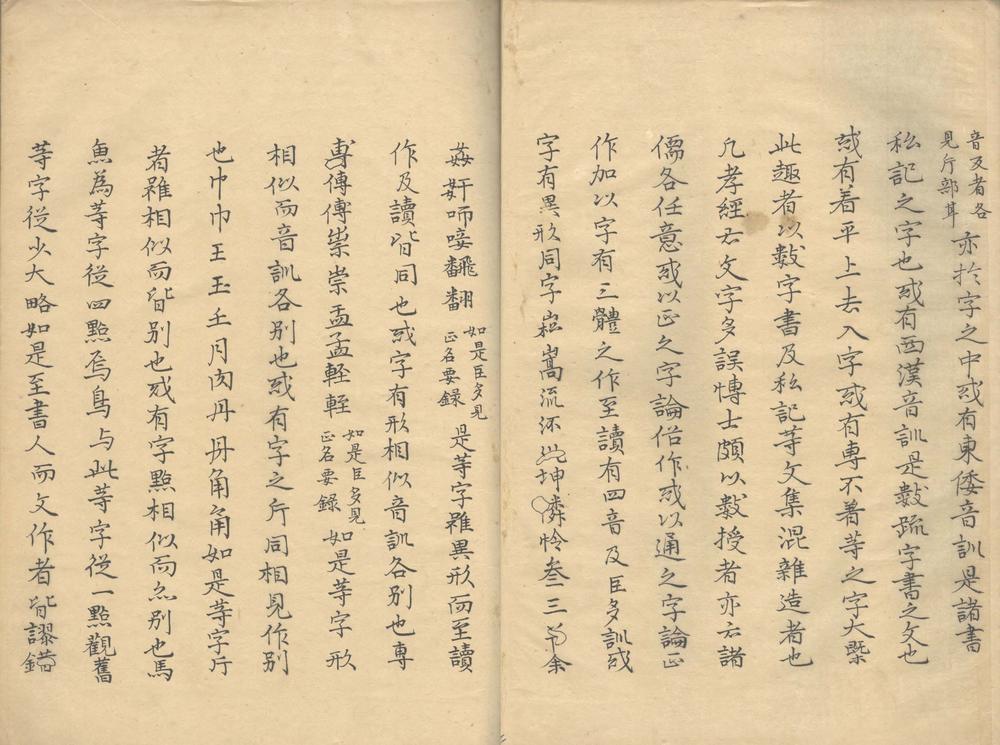 音及者各
見斤部耳
亦於字之中或有東倭音訓是諸書
私記之字也或有西漢音訓是數疏字書之文也
或有着平上去入字或有專不著等之字大槩
此趣者以數字書及私記等文集混雜造者也
凡孝經云文字多誤博士頗以數授者亦云諸
儒各任意或以正之字論俗作或以通之字論正
作加以字有三體之作至讀有四音及巨多訓或
字有異形同字崧嵩流坤憐怜叁三余
姦奸呞唼飜翻
如是巨多見
正名要録
是等字雖異形而至讀
作及讀皆同也或字有形相似音訓各別也專
專傳傅崇祟盂孟輕輊
如是巨多見
正名要録
如是等字形
相似而音訓各別也或有字之斤同相見作別
也巾巾王玉壬月肉丹丹角角如是等字斤
者雖相似而皆別也或有字點相似而亦別也馬
魚為等字從四點焉鳥与此等字從一點觀舊
等字從少大略如是至書人而文作者皆謬錯